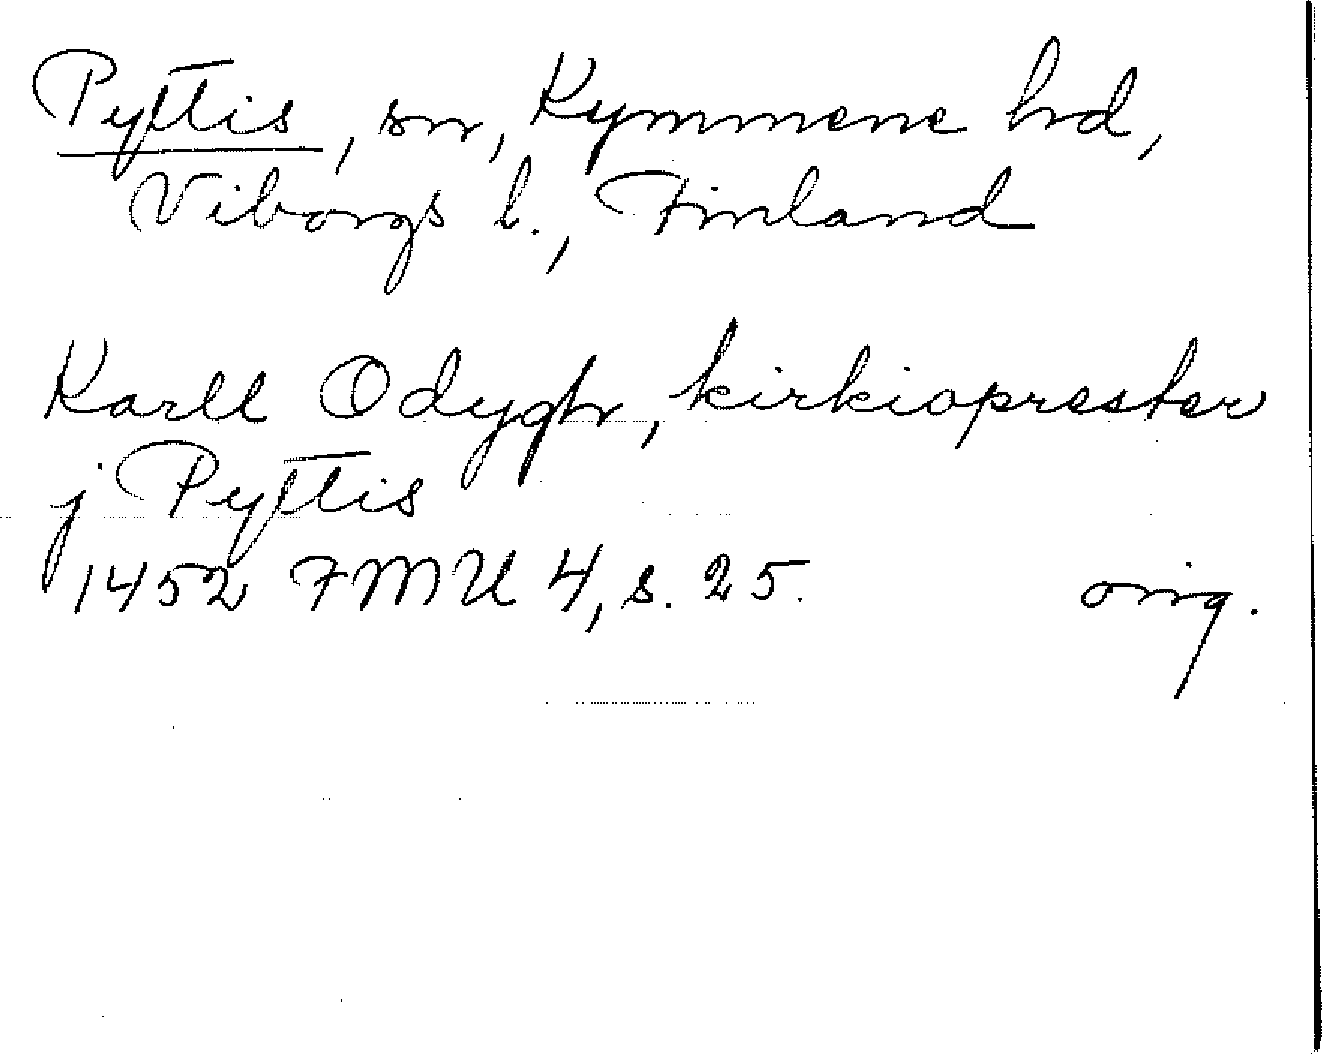 Pyttis, sn, Kymmene hd,
Viborgs l., Finland
Karll Odyghr, kirkioprester
j Pyttis
1452 FMU 4, s. 25. orig.